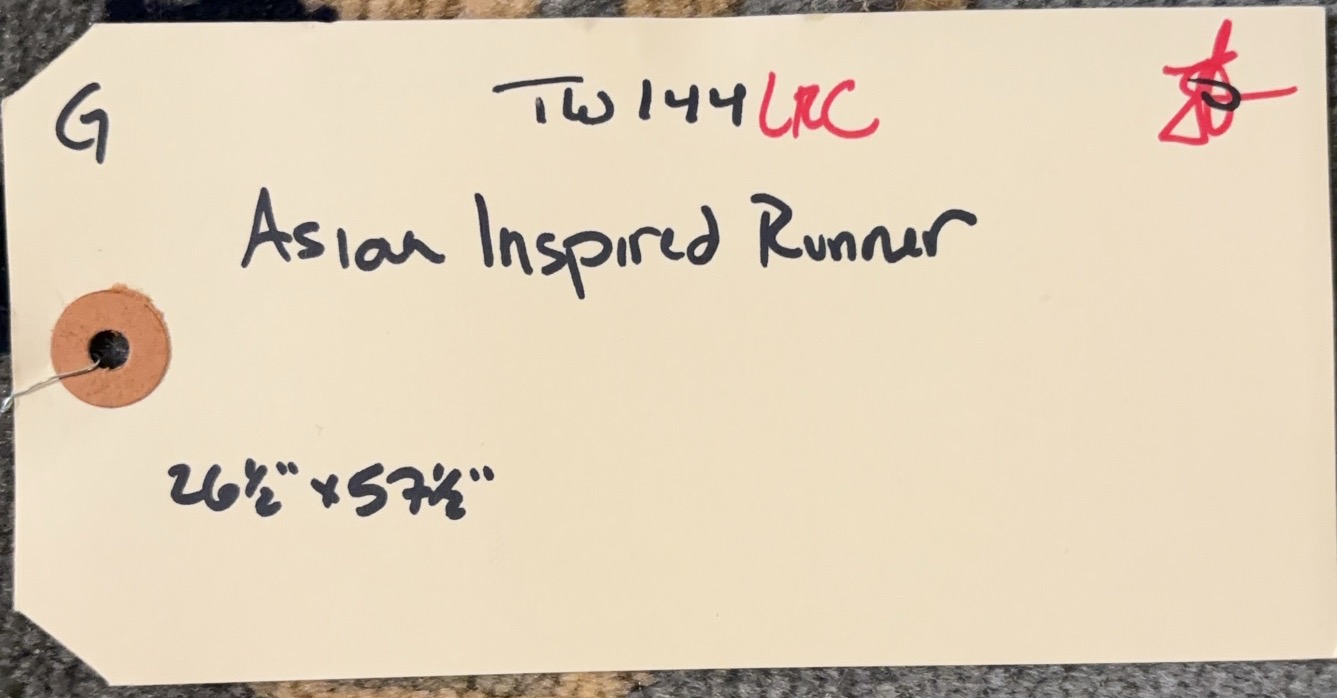 G TW144LRC
Asian Inspired Runner
26½" x 57½"